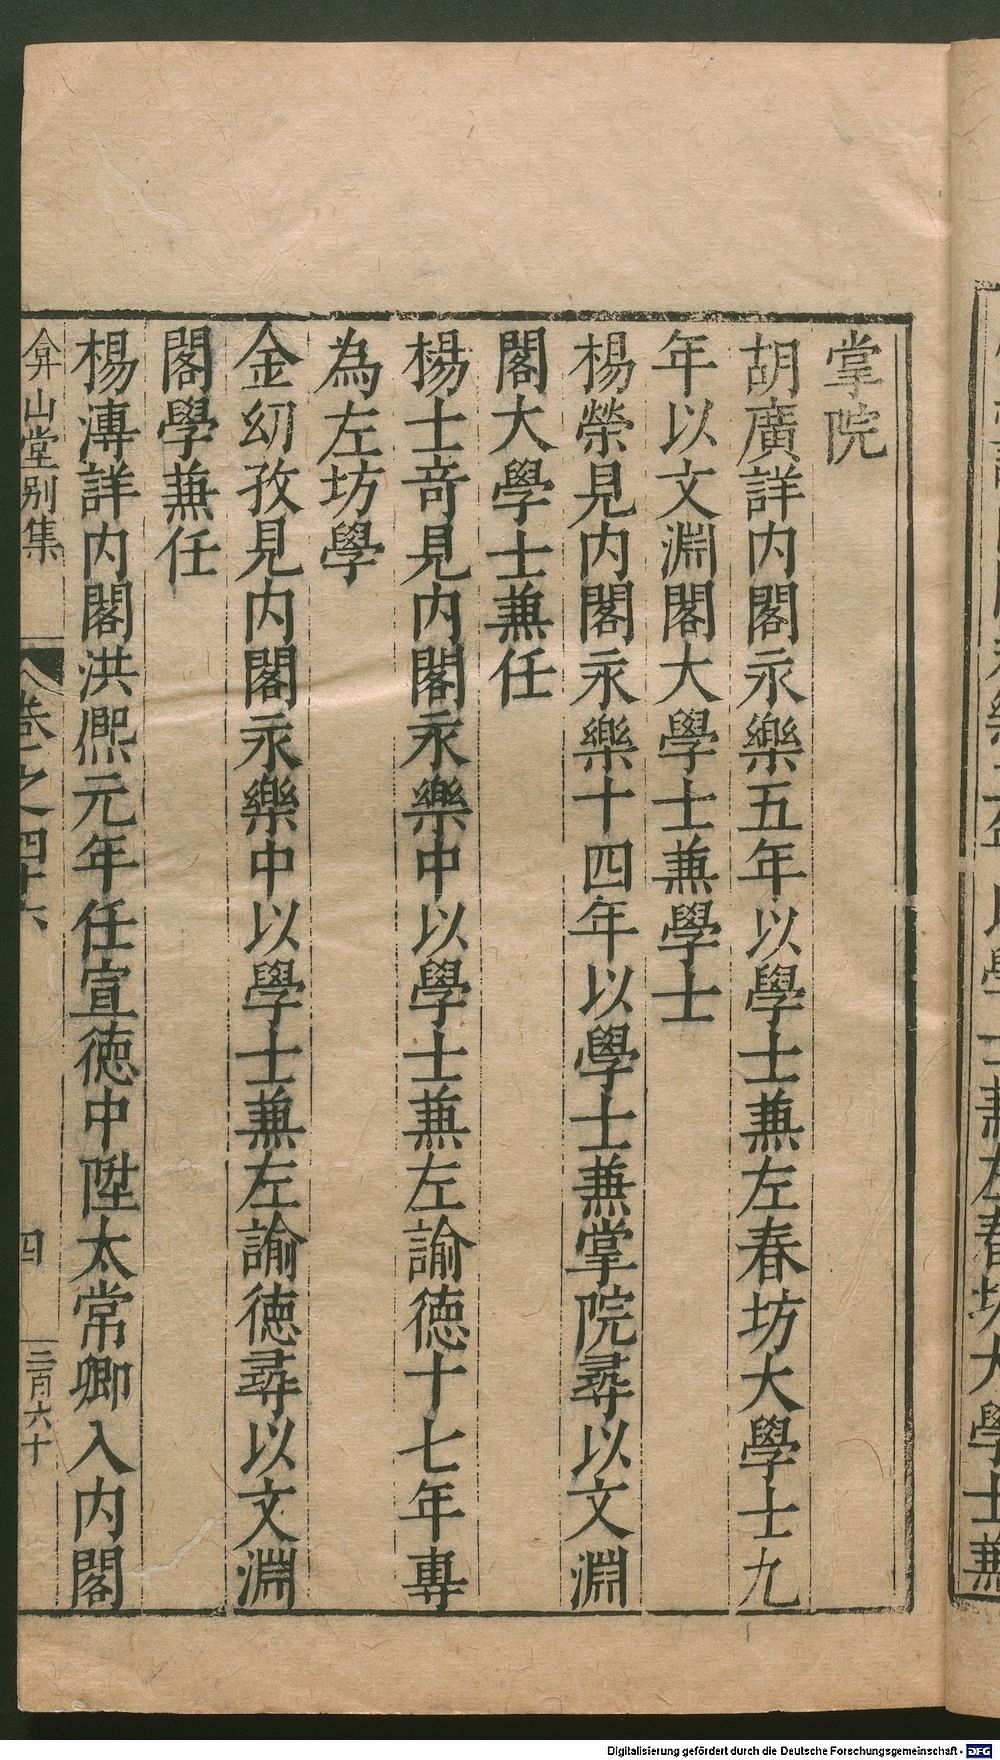 掌院
胡廣詳内閣永樂五年以學士兼左春坊大學士九
年以文淵閣大學士兼學士
楊榮見内閣永樂十四年以學士兼掌院尋以文淵
閣大學士兼任
楊士竒見内閣永樂中以學士兼左諭徳十七年專
為左坊學
金幼孜見内閣永樂中以學士兼左諭徳尋以文淵
閣學兼任
楊溥詳内閣洪熈元年任宣徳中陞太常卿入内閣
弇山堂别集
卷之四十六
四
三百六十
左春坊大學士兼
Digitalisierung gefördert durch die Deutsche Forschungsgemeinschaft - DFG